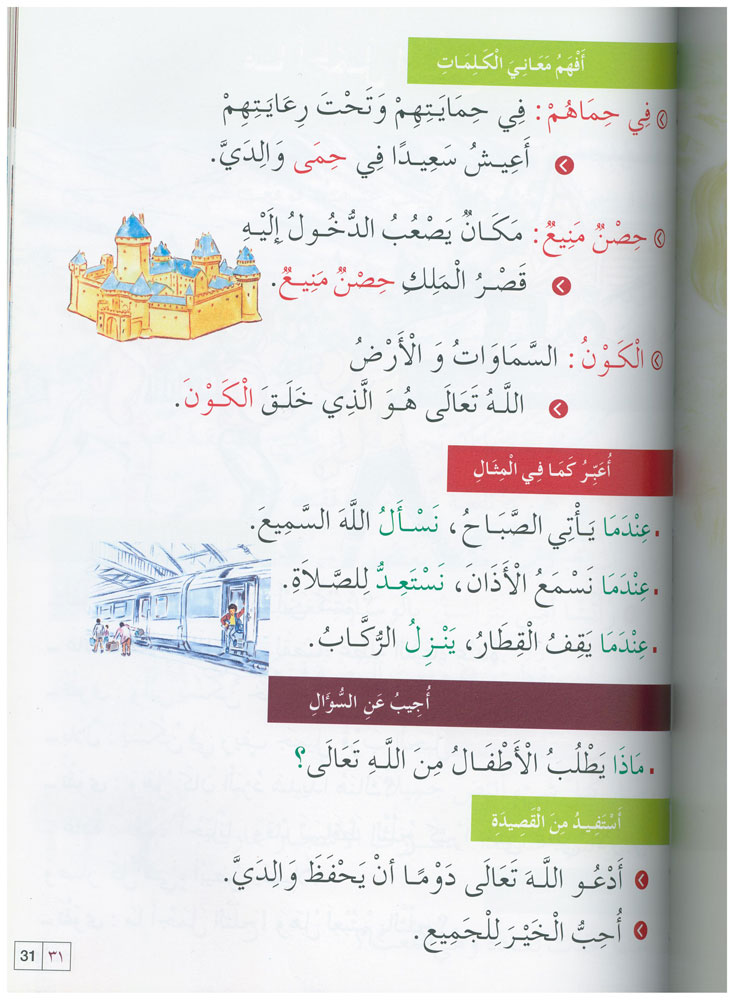 أَفْهَمُ مَعَانِيَ الْكَلِمَاتِ
فِي حِمَاهُمْ: فِي حِمَايَتِهِمْ وَتَحْتَ رِعَايَتِهِمْ
أَعِيشُ سَعِيدًا فِي حِمَى وَالِدَيَّ.
حِصْنٌ مَنِيعٌ: مَكَانٌ يَصْعُبُ الدُّخُولُ إِلَيْهِ
قَصْرُ الْمَلِكِ حِصْنٌ مَنِيعٌ.
الْكَوْنُ: السَّمَاوَاتُ وَ الْأَرْضُ
اللَّهُ تَعَالَى هُوَ الَّذِي خَلَقَ الْكَوْنَ.
أُعَبِّرُ كَمَا فِي الْمِثَالِ
عِنْدَمَا يَأْتِي الصَّبَاحُ، نَسْأَلُ اللَّهَ السَّمِيعَ.
عِنْدَمَا نَسْمَعُ الْأَذَانَ، نَسْتَعِدُّ لِلصَّلَاةِ.
عِنْدَمَا يَقِفُ الْقِطَارُ، يَنْزِلُ الرُّكَّابُ.
أُجِيبُ عَنِ السُّؤَالِ
مَاذَا يَطْلُبُ الْأَطْفَالُ مِنَ اللَّهِ تَعَالَى؟
أَسْتَفِيدُ مِنَ الْقَصِيدَةِ
أَدْعُو اللَّهَ تَعَالَى دَوْمًا أنْ يَحْفَظَ وَالِدَيَّ.
أُحِبُّ الْخَيْرَ لِلْجَمِيعِ.
31 ٣١